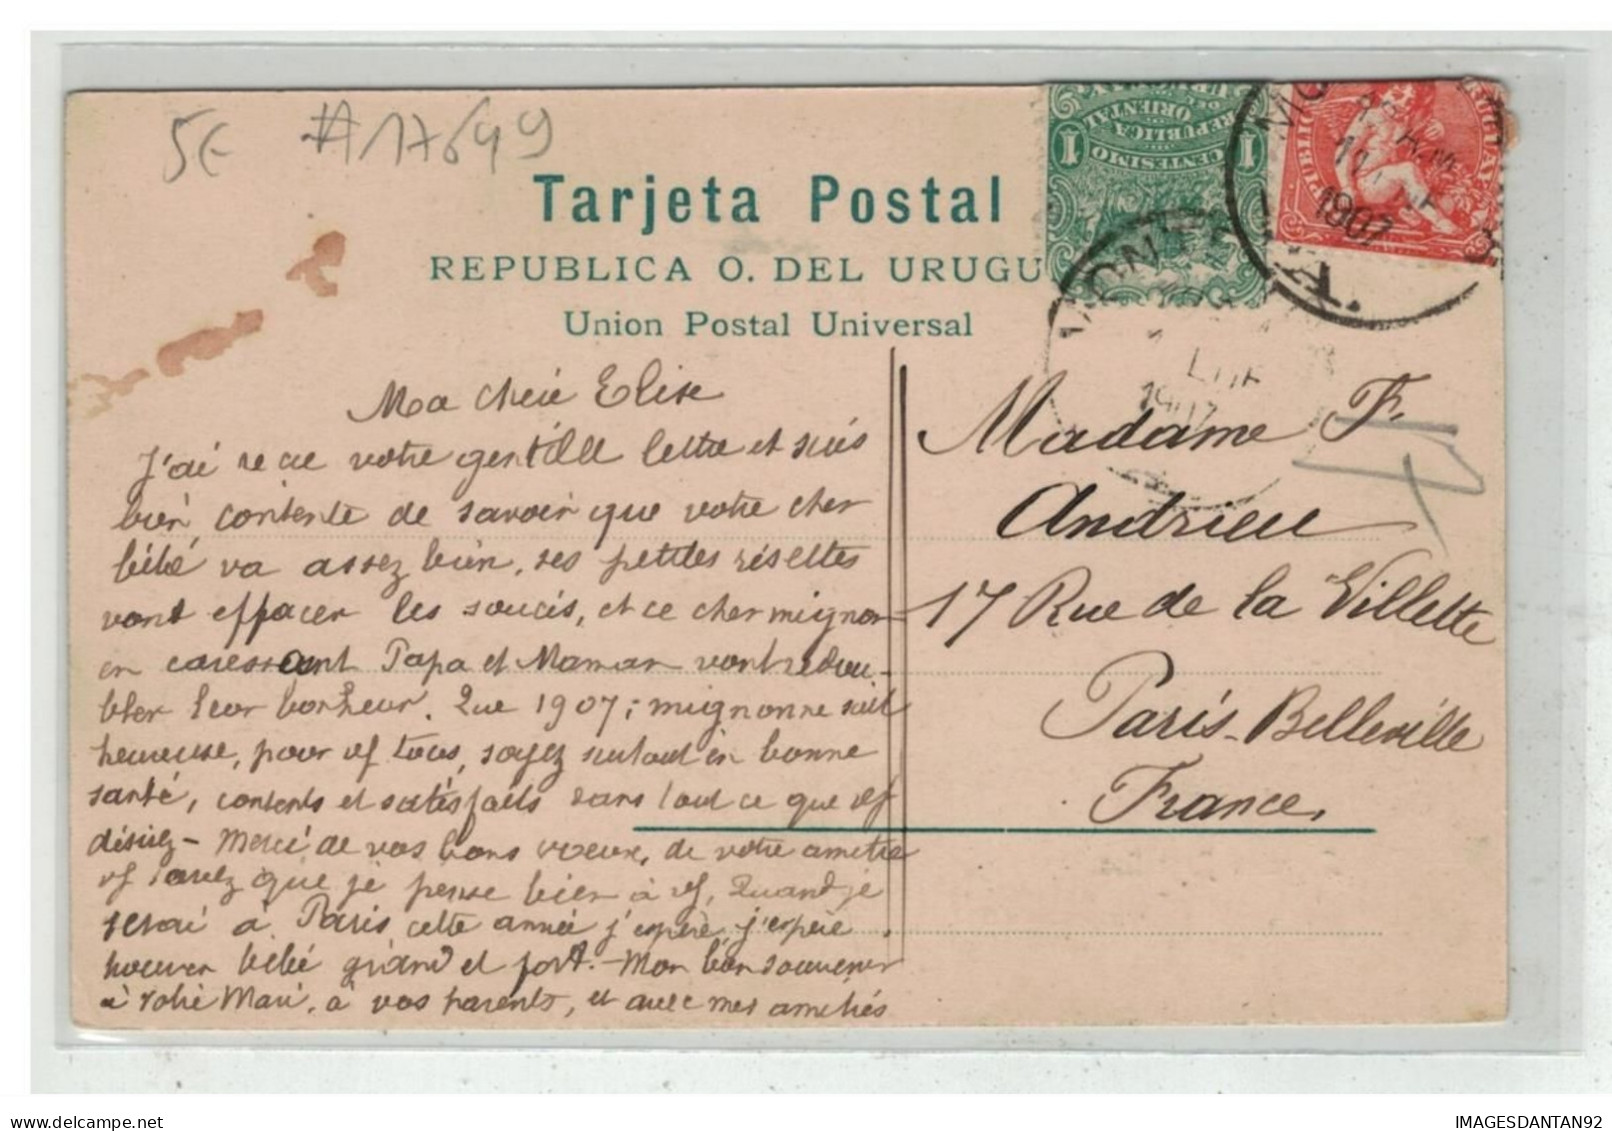 5€ #17649
Tarjeta Postal
REPUBLICA O. DEL URUGU
Union Postal Universal
REPUBLICA
ORIENTAL
CENTESIMO
1 1
1907
Ma chère Elise
J'ai recue votre gentille lettre et suis
bien contente de savoir que votre cher
bébé va assez bien, ses petites risettes
vont effacer les soucis, et ce cher mignon
en caressant Papa et Maman vont redou-
bler leur bonheur. Que 1907, mignonne soit
heureuse, pour vs tous, soyez surtout en bonne
santé, contents et satisfaits dans tout ce que vs
désirez - Merci de vos bons voeux, de votre amitié
vs savez que je pense bien à vs, Quand je
serai à Paris cette année j'espère, j'espère
trouver bébé grand et fort. - Mon bon souvenir
à votre Mari, à vos parents, et avec mes amitiés
Madame F.
Andrieu
17 Rue de la Villette
Paris-Belleville
France.
delcampe.net
IMAGESDANTAN92